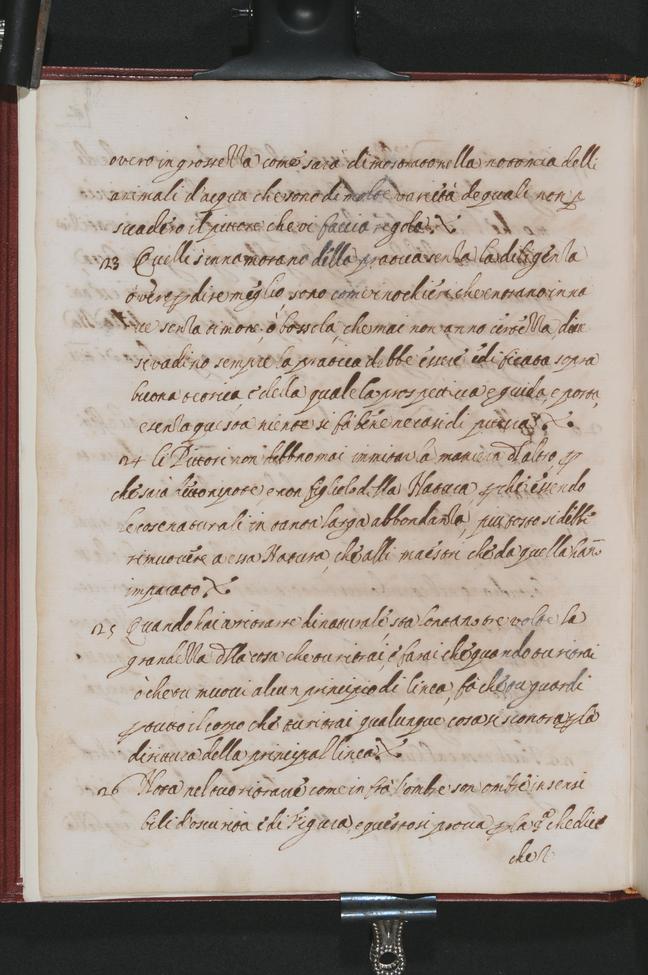 overo in grossezza come sarà dimostrato nella notomia delli
animali d'acqua che sono di molte varietà de quali non p
suadero il pittore che vi faccia regola.
23 Quelli s'innamorano della pratica senza la diligenza
overo p dire meglio, sono come i nochieri che entrano in na
ve senza timone, ò bossola, che mai non anno certezza, dove
si vadino sempre la pratica debbe essere edificata sopra
buona teorica, e della quale la prospettiva e guida, e porta,
e senza questa niente si fà bene ne casi di pittura.
24 Li Pittori non debbno mai immitar la maniera d'altro, p
che sarà detto nipote e non figlio della Natura, p che essendo
le cose naturali in tanta larga abbondanza, piu tosto si debbe
rimuovere a essa Natura, che alli maestri che da quella hanno
imparato.
25 Quando hai a ritrarre di naturale sta lontano tre volte la
grandezza dlla cosa che tu ritrai, e farai che quando tu ritrai
ò che tu muovi alcun principio di linea, fà che tu guardi
p tutto il corpo che tu ritrai qualunque cosa si scontra p la
diritura della principal linea.
26 Nota nel tuo ritrarre come infrà l'ombre son ombre insensi
bili d'oscurita e di Figura, e questo si prova p la 3.a che dice
che l